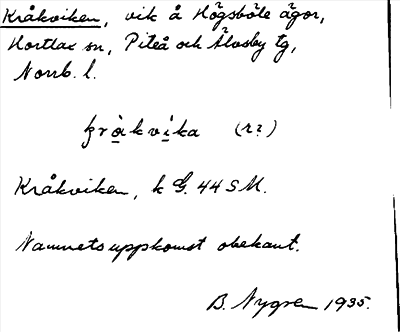 Kråkviken, vik å Högsböle ägor,
Hortlax sn, Piteå och Älvsby tg,
Norrb. l.
kràkvika (r?)
Kråkviken, k G. 44 S M.
Namnets uppkomst obekant.
B. Nygren 1935.